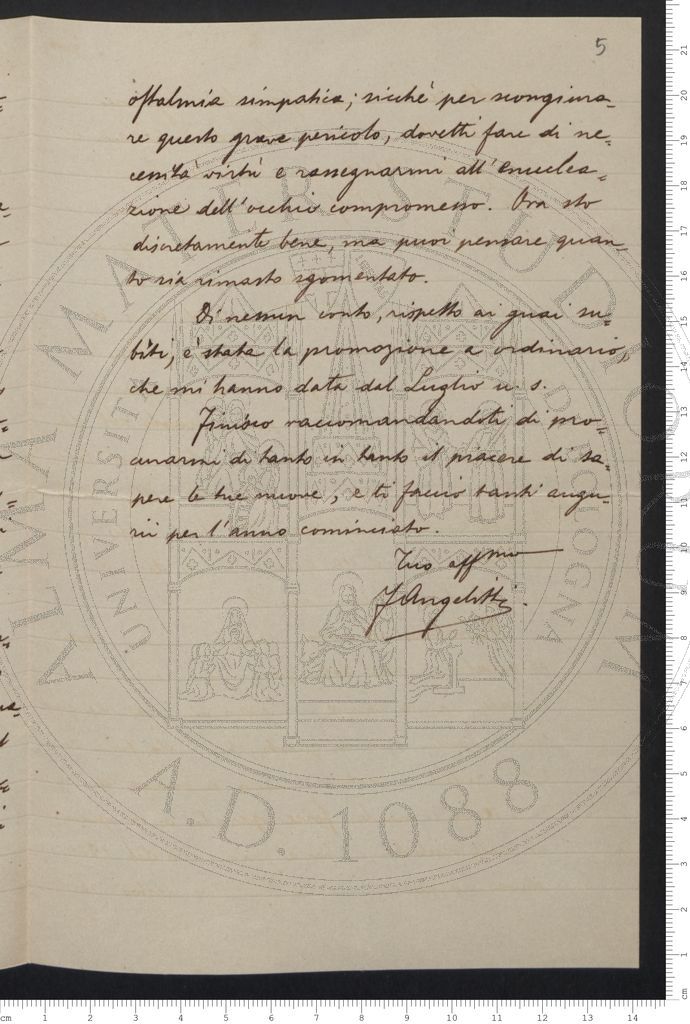 5
oftalmia simpatica; sicché per scongiura=
re questo grave pericolo, dovetti fare di ne=
cessità virtù e rassegnarmi all'enuclea=
zione dell'occhio compromesso. Ora sto
discretamente bene, ma puoi pensare quan=
to sia rimasto sgomentato.
Di nessun conto, rispetto ai guai su=
biti, è stata la promozione a ordinario,
che mi hanno data dal Luglio u. s.
Finisco raccomandandoti di pro=
curarmi di tanto in tanto il piacere di sa=
pere le tue nuove, e ti faccio tanti augu=
rii per l'anno cominciato.
Tuo affmo
F Angelitti.
ALMA MATER STUDIORUM
UNIVERSITÀ DI BOLOGNA
A.D. 1088